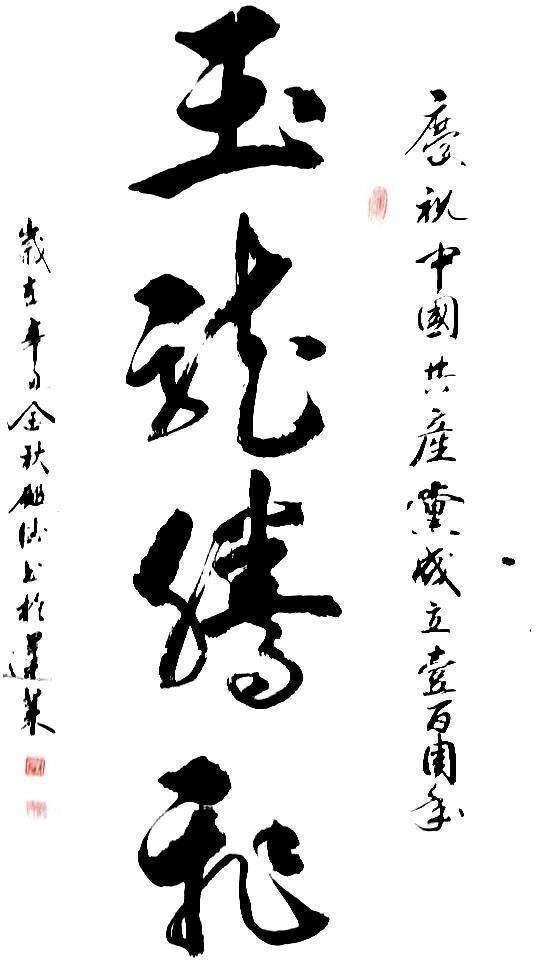 慶祝中國共産黨成立壹百周年
玉龍騰飛
歲在辛丑金秋書於蓬萊